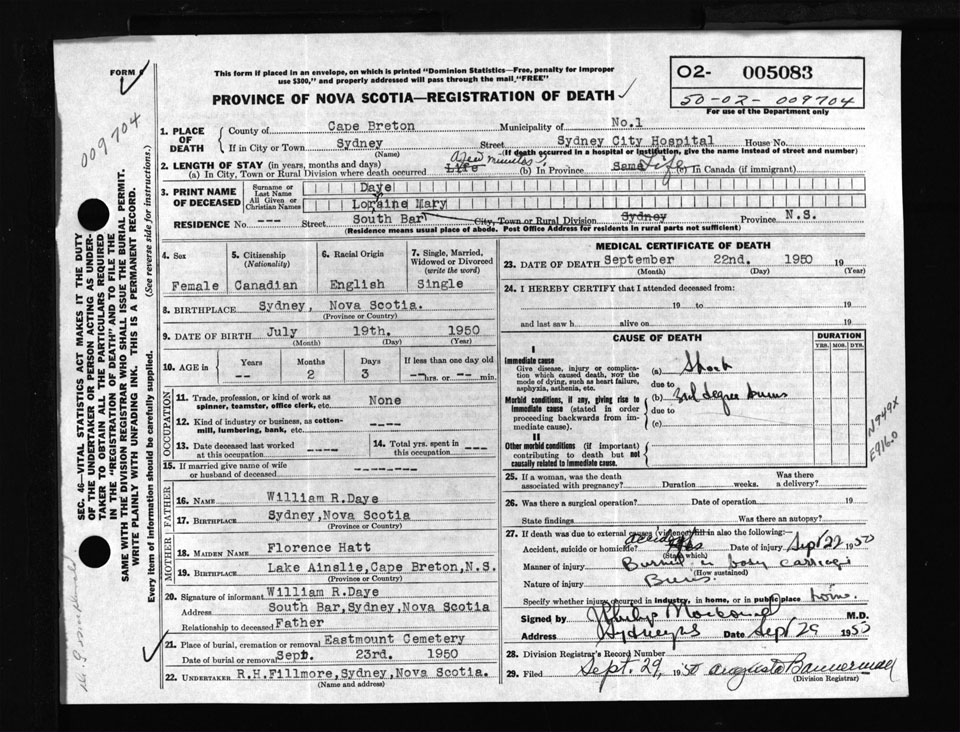 FORM
This form if placed in an envelope, on which is printed "Dominion Statistics—Free, penalty for improper
use $300," and properly addressed will pass through the mail "FREE"
PROVINCE OF NOVA SCOTIA—REGISTRATION OF DEATH
O2- 005083
50-02-009704
For use of the Department only
009704
1. PLACE OF DEATH { County of Cape Breton Municipality of No.1
If in City or Town Sydney (Name) Street Sydney City Hospital House No.
(If death occurred in a hospital or institution, give the name instead of street and number)
2. LENGTH OF STAY (in years, months and days)
(a) In City, Town or Rural Division where death occurred Life a few minutes (b) In Province Same Life (c) In Canada (if immigrant)
3. PRINT NAME OF DECEASED { Surname or Last Name Daye
All Given or Christian Names Loraine Mary
RESIDENCE No. --- Street South Bar City, Town or Rural Division Sydney Province N.S.
(Residence means usual place of abode. Post Office Address for residents in rural parts not sufficient)
SEC. 46—VITAL STATISTICS ACT MAKES IT THE DUTY
OF THE UNDERTAKER OR PERSON ACTING AS UNDER-
TAKER TO OBTAIN ALL THE PARTICULARS REQUIRED
IN THE "REGISTRATION OF DEATH" AND TO FILE THE
SAME WITH THE DIVISION REGISTRAR WHO SHALL ISSUE THE BURIAL PERMIT.
WRITE PLAINLY WITH UNFADING INK. THIS IS A PERMANENT RECORD.
Every item of information should be carefully supplied. (See reverse side for instructions.)
4. Sex Female
5. Citizenship (Nationality) Canadian
6. Racial Origin English
7. Single, Married, Widowed or Divorced (write the word) Single
8. BIRTHPLACE Sydney, Nova Scotia.
(Province or Country)
9. DATE OF BIRTH July 19th. 1950
(Month) (Day) (Year)
10. AGE in { Years -- Months 2 Days 3 If less than one day old --hrs. or -- min.
OCCUPATION
11. Trade, profession, or kind of work as
spinner, teamster, office clerk, etc. None
12. Kind of industry or business, as cotton-
mill, lumbering, bank, etc. ---
13. Date deceased last worked
at this occupation ----
14. Total yrs. spent in
this occupation ---
15. If married give name of wife
or husband of deceased -------
FATHER
16. NAME William R.Daye
17. BIRTHPLACE Sydney,Nova Scotia
(Province or Country)
MOTHER
18. MAIDEN NAME Florence Hatt
19. BIRTHPLACE Lake Ainslie,Cape Breton,N.S.
(Province or Country)
20. Signature of informant William R.Daye
Address South Bar,Sydney,Nova Scotia
Relationship to deceased Father
21. Place of burial, cremation or removal Eastmount Cemetery
Date of burial or removal Sept. 23rd. 1950
22. UNDERTAKER R.H.Fillmore,Sydney,Nova Scotia.
(Name and address)
MEDICAL CERTIFICATE OF DEATH
23. DATE OF DEATH September 22nd. 1950 19
(Month) (Day) (Year)
24. I HEREBY CERTIFY that I attended deceased from:
19 to 19
and last saw h alive on 19
CAUSE OF DEATH
DURATION
YRS. MOS. DYS.
I
Immediate cause
Give disease, injury or complica-
tion which caused death, NOT the
mode of dying, such as heart failure,
asphyxia, asthenia, etc.
(a) Shock
due to
Morbid conditions, if any, giving rise to
immediate cause (stated in order
proceeding backwards from im-
mediate cause).
(b) 3rd degree burns
due to
(c)
II
Other morbid conditions (if important)
contributing to death but not
causally related to immediate cause.
N949X
E9160
25. If a woman, was the death
associated with pregnancy? Duration weeks. Was there a delivery?
26. Was there a surgical operation? Date of operation 19
State findings Was there an autopsy?
27. If death was due to external causes (violence) fill in also the following:
Accident, suicide or homicide? Accident Date of injury Sept 22 1950
(State which)
Manner of injury Burned in baby carriage
(How sustained)
Nature of injury Burns.
Specify whether injury occurred in industry, in home, or in public place home.
Signed by M.D.
Address Sydney NS Date Sept 29 1950
28. Division Registrar's Record Number
29. Filed Sept. 29, 1950 Augusta Bannerman
(Division Registrar)